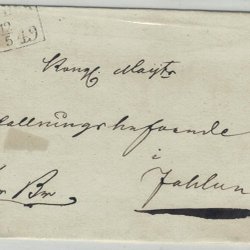 12
5 49
Kongl. Majts
allningshafvande
i
Fahlun
Br